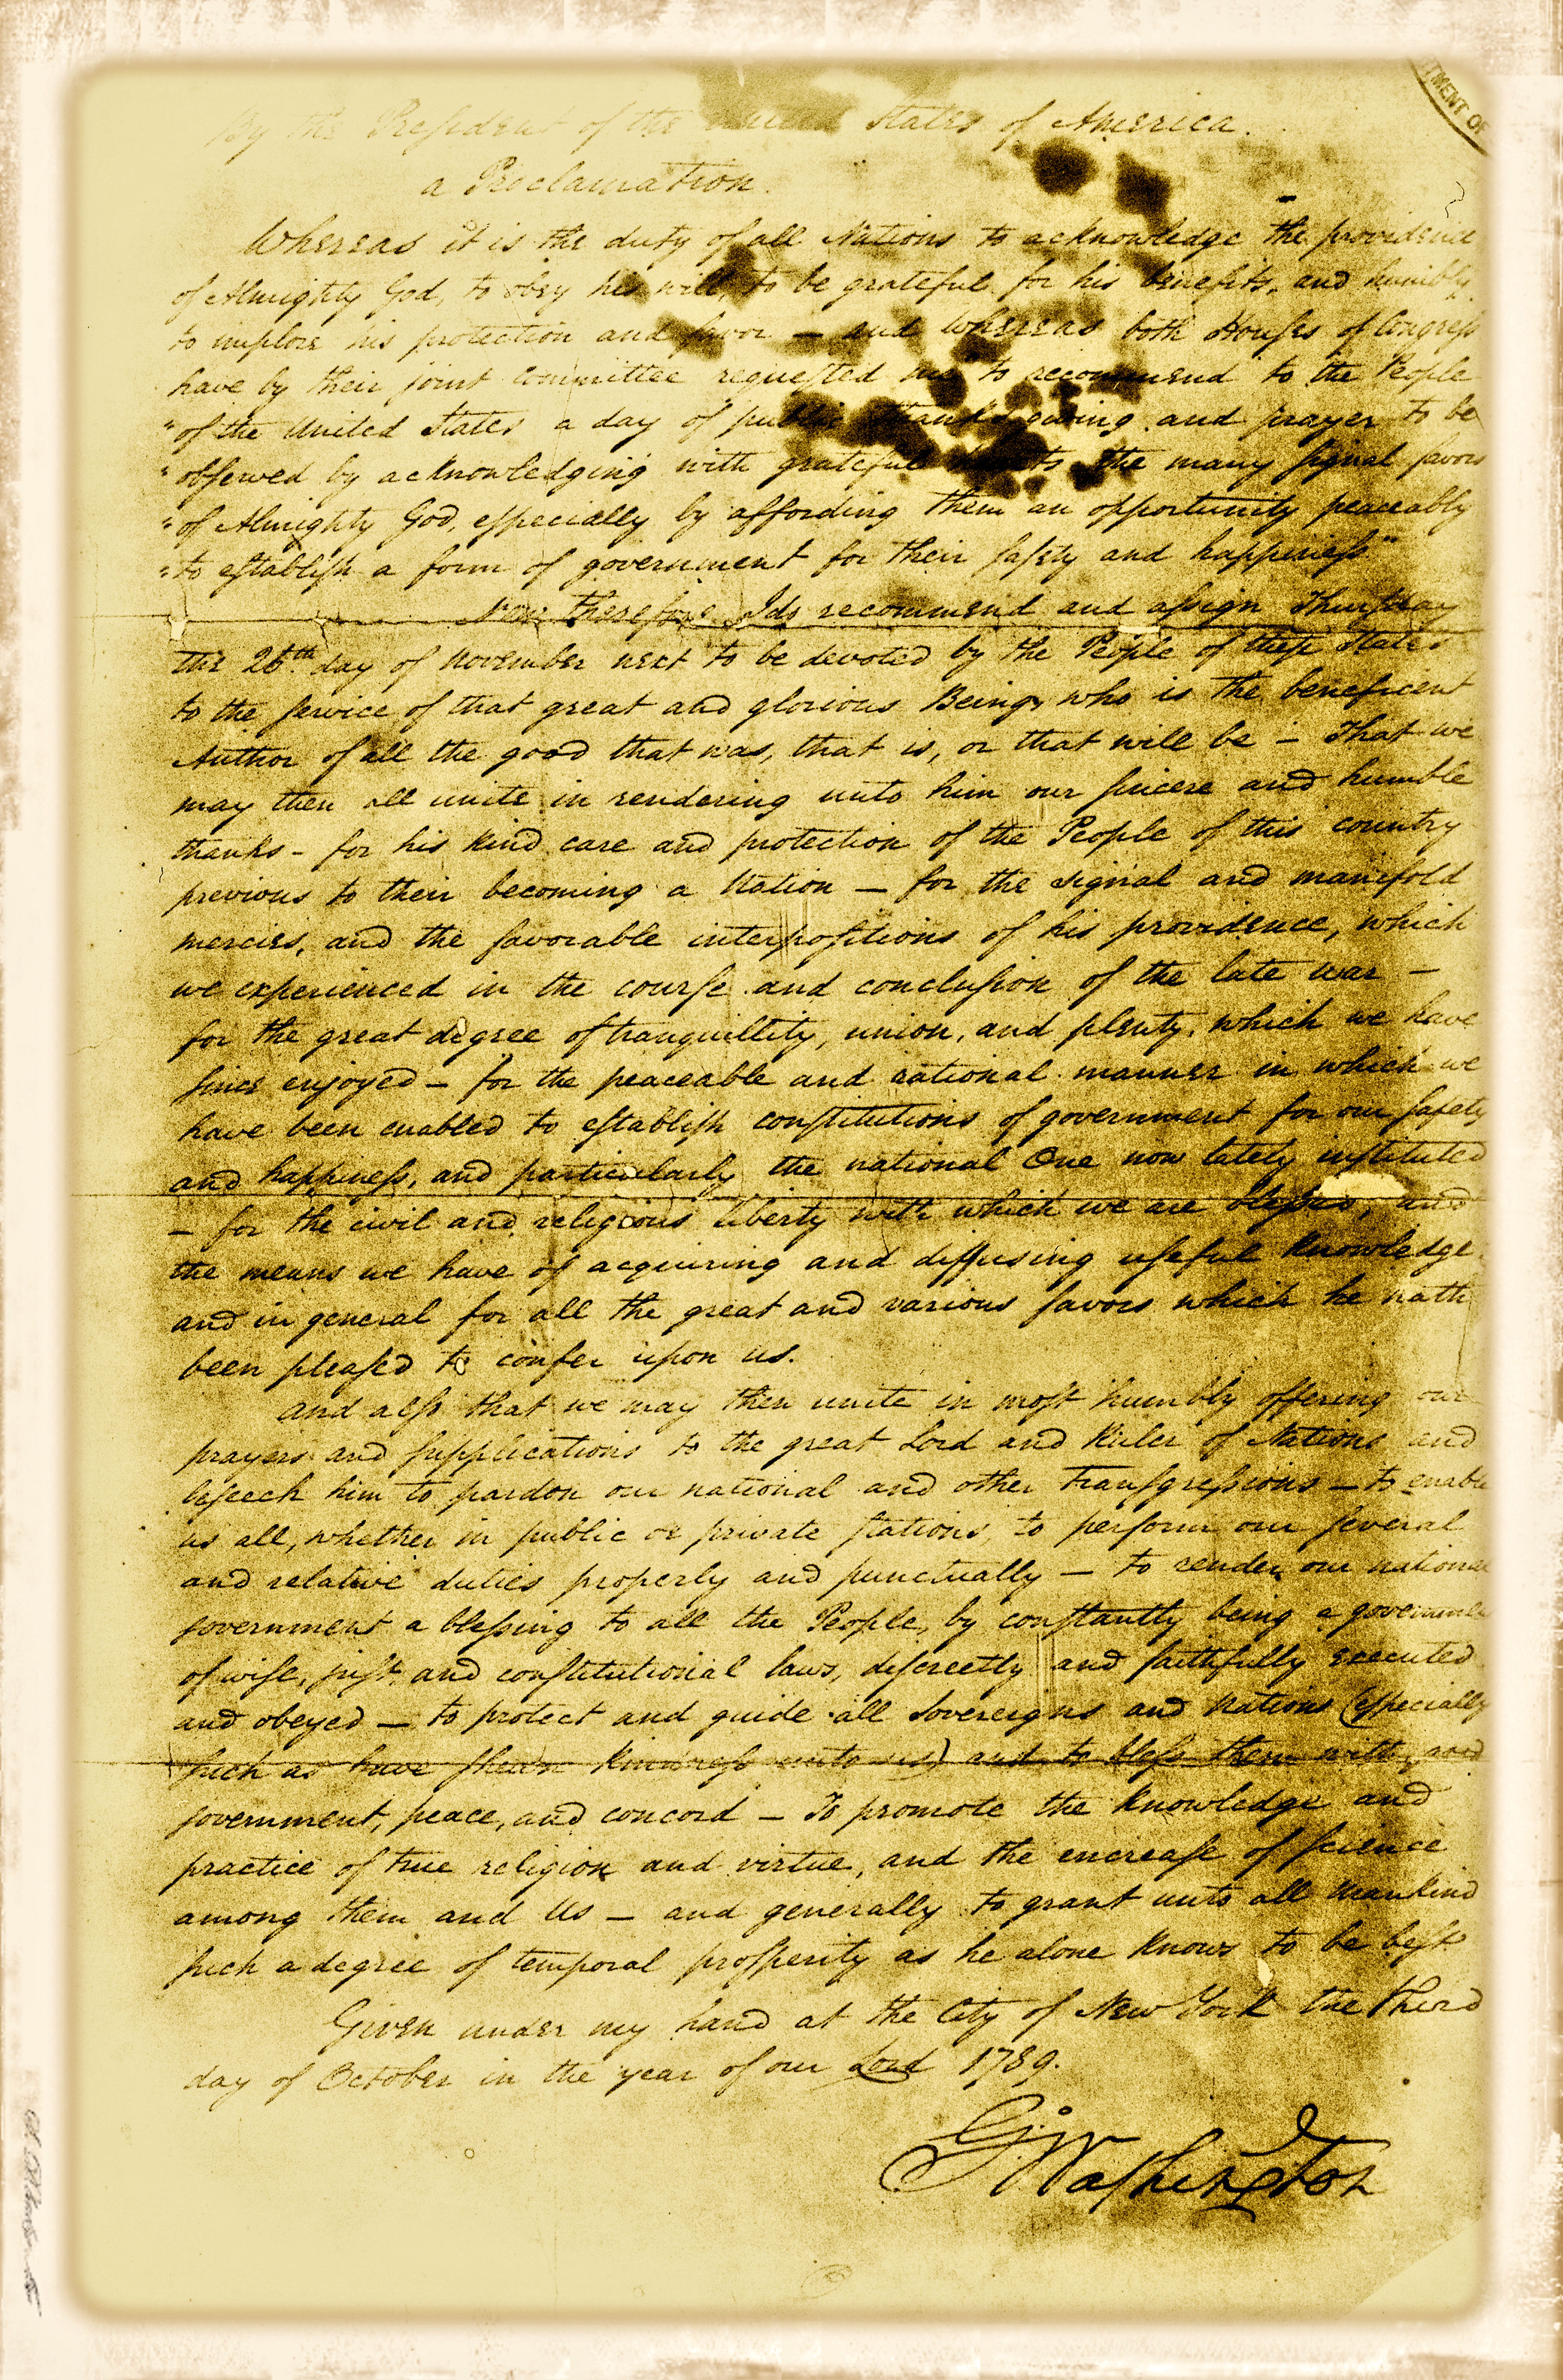 TMENT OF
By the President of the United States of America.
a Proclamation.
Whereas it is the duty of all Nations to acknowledge the providence
of Almighty God, to obey his will, to be grateful for his benefits, and humbly
to implore his protection and favor – and Whereas both Houses of Congress
have by their joint Committee requested me "to recommend to the People
"of the United States a day of public thanksgiving and prayer to be
"observed by acknowledging with grateful hearts the many signal favors
"of Almighty God, especially by affording them an opportunity peaceably
"to establish a form of government for their safety and happiness"
Now therefore I do recommend and assign Thursday
the 26th day of November next to be devoted by the People of these States
to the service of that great and glorious Being, who is the beneficent
Author of all the good that was, that is, or that will be – That we
may then all unite in rendering unto him our sincere and humble
thanks – for his kind care and protection of the People of this country
previous to their becoming a Nation – for the signal and manifold
mercies, and the favorable interpositions of his providence, which
we experienced in the course and conclusion of the late war –
for the great degree of tranquillity, union, and plenty, which we have
since enjoyed – for the peaceable and rational manner in which we
have been enabled to establish constitutions of government for our safety
and happiness, and particularly the national One now lately instituted
– for the civil and religious liberty with which we are blessed, and
the means we have of acquiring and diffusing useful knowledge
and in general for all the great and various favors which he hath
been pleased to confer upon us.
And also that we may then unite in most humbly offering our
prayers and supplications to the great Lord and Ruler of Nations and
beseech him to pardon our national and other transgressions – to enable
us all, whether in public or private stations, to perform our several
and relative duties properly and punctually – to render our national
government a blessing to all the People, by constantly being a government
of wise, just and constitutional laws, discreetly and faithfully executed
and obeyed – to protect and guide all Sovereigns and Nations (especially
such as have shewn kindness unto us) and to bless them with good
government, peace, and concord – To promote the knowledge and
practice of true religion and virtue, and the encrease of science
among them and Us – and generally to grant unto all Mankind
such a degree of temporal prosperity as he alone knows to be best.
Given under my hand at the City of New York the third
day of October in the year of our Lord 1789.
G: Washington